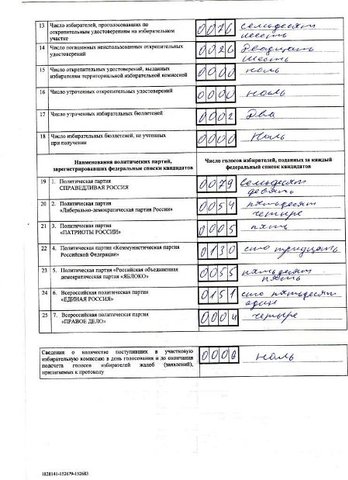 13 Число избирателей, проголосовавших по
открепительным удостоверениям на избирательном
участке
0076 семьдесят
шесть
14 Число погашенных неиспользованных открепительных
удостоверений
0026 двадцать
шесть
15 Число открепительных удостоверений, выданных
избирателям территориальной избирательной комиссией
0000 ноль
16 Число утраченных открепительных удостоверений
0000 ноль
17 Число утраченных избирательных бюллетеней
0002 Два
18 Число избирательных бюллетеней, не учтенных
при получении
0000 Ноль
Наименования политических партий,
зарегистрировавших федеральные списки кандидатов
Число голосов избирателей, поданных за каждый
федеральный список кандидатов
19 1. Политическая партия
СПРАВЕДЛИВАЯ РОССИЯ
0079 семьдесят
девять
20 2. Политическая партия
«Либерально-демократическая партия России»
0054 пятьдесят
четыре
21 3. Политическая партия
«ПАТРИОТЫ РОССИИ»
0005 пять
22 4. Политическая партия «Коммунистическая партия
Российской Федерации»
0130 сто тридцать
23 5. Политическая партия «Российская объединенная
демократическая партия «ЯБЛОКО»
0055 пятьдесят
пять
24 6. Всероссийская политическая партия
«ЕДИНАЯ РОССИЯ»
0151 сто пятьдесят
один
25 7. Всероссийская политическая партия
«ПРАВОЕ ДЕЛО»
0004 четыре
Сведения о количестве поступивших в участковую
избирательную комиссию в день голосования и до окончания
подсчета голосов избирателей жалоб (заявлений),
прилагаемых к протоколу
0000 ноль